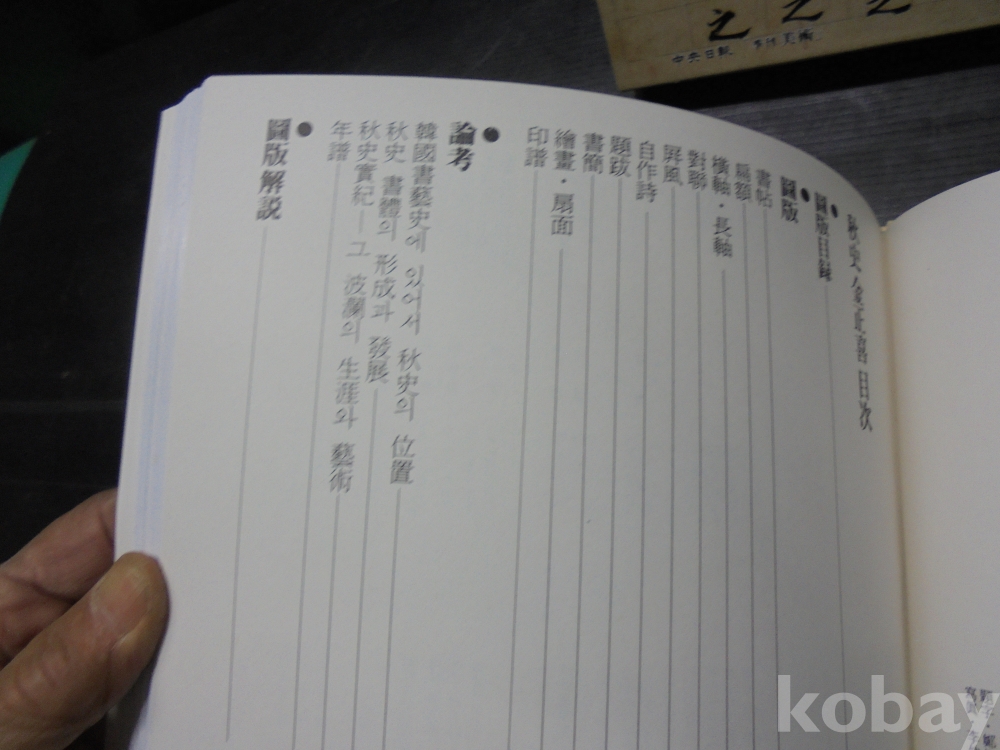 之 之 之
中央日報 季刊美術
秋史 金正喜 目次
● 圖版目錄
● 圖版
書帖
扁額
橫軸・長軸
對聯
屛風
自作詩
題跋
書簡
繪畫・扇面
印譜
● 論考
韓國書藝史에 있어서 秋史의 位置
秋史 書體의 形成과 發展
秋史實紀―그 波瀾의 生涯와 藝術
年譜
● 圖版解説
kobay